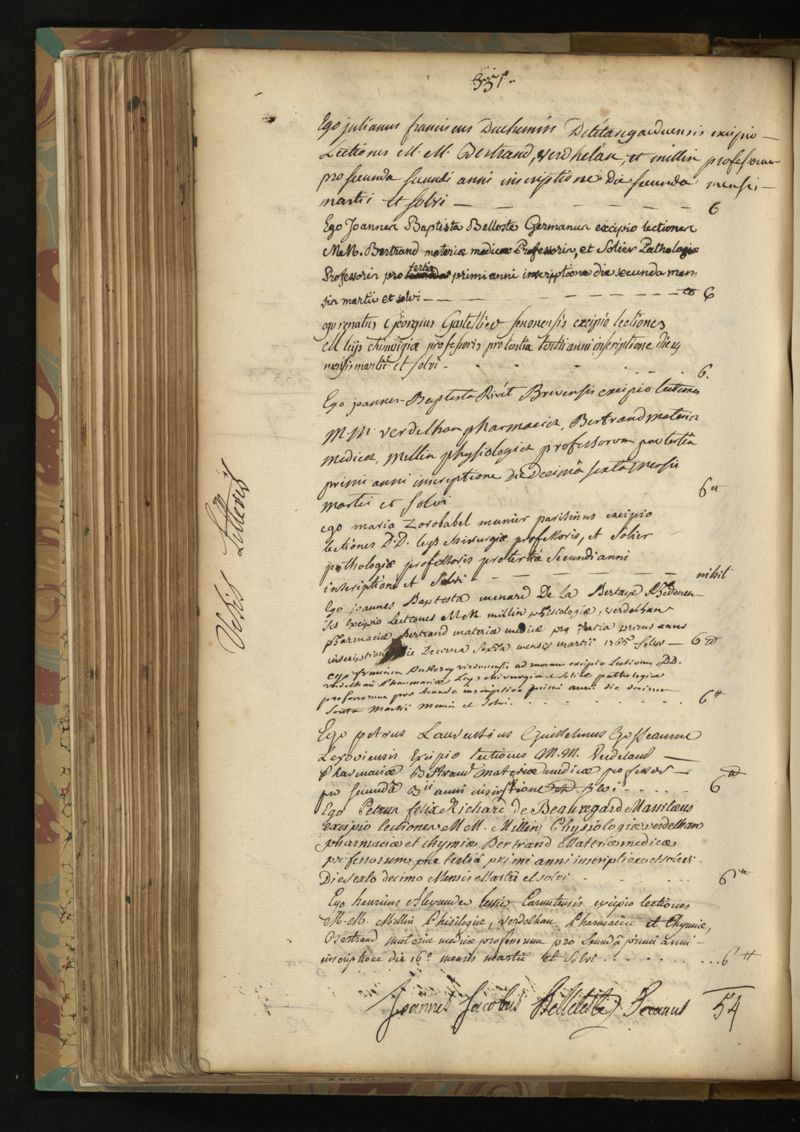 351.
Ego julianus franciscus Duchemin Deletang excipio
Lectiones M. M. Bertrand, verdhelan, et millin professorum
pro secunda secundi anni inscriptione die secunda mensis
martii et solvi — 6
Ego Joannes Baptista Belloste Germanus excipio lectiones
M.M. Bertrand materiæ medicæ Professoris, et Solier Pathologiæ
Professoris pro tertia primi anni inscriptione die secunda men-
sis martii et solvi — 6
ego renatus Georgius Gastellier senonensis excipio lectiones
M leijs chirurgiæ professoris pro tertia tertii anni inscriptione die
mensis martii et solvi - 6.
Ego joannes-Baptista Rivet Brivensis excipio lectiones
M.M. verdelhan pharmaciæ, Bertrand materiæ
medicæ, Millin physiologiæ professorum pro tertiâ
primi anni inscriptione die Decimâ sextâ mensis
martii et solvi 6
ego maria Zorobabel munier parisinus excipio
lectiones D.D. leys chirurgiæ professoris, et Solier
pathologiæ professoris pro tertiâ secundi anni
inscriptione et solvi — nihil
Ego joannes Baptista menard De La Bertaye Rhedonen-
sis excipio Lectiones M M millin physiologiæ, verdelhan
Pharmaciæ Bertrand materiæ medicæ pro tertia primi anni
inscriptione die Decima Sexta mensis martii 1765 solvi — 6
ego franciscus virdunensis excipio Lectiones D.D.
verdelhan Pharmaciæ Leys chirurgiæ et Solier pathologiæ
professorum pro inscriptione primi anni die decima
sexta Martii et Solvi. 6
Ego petrus Laurentius Guillelmus Gosseaume
Lexoviensis Excipio lectiones M.M. Verdelant
Pharmaciæ Bertrand materiæ medicæ professor
pro secundâ anni inscriptione solvi 6
Ego Petrus felix Richard de Beauregard Massiliens
Excipio lectiones M M. Millin Physiologiæ verdelhan
pharmaciæ et chymiæ Bertrand Materiæ medicæ
professorum pro tertiâ primi anni inscriptione et solvi.
Die sexto decimo Mensis Martii et solvi 6
Ego henricus Alexander Carnutensis excipio lectiones
M. M. Millin Phisilogiæ, verdelhan Pharmaciæ et Chymiæ,
Bertrand materiæ medicæ professorum pro secundâ primi anni
inscriptione die 16.ª mensis martii et Solvi 6
Joannes Jacobus Belleteste Decanus 54
Vobis Litteris